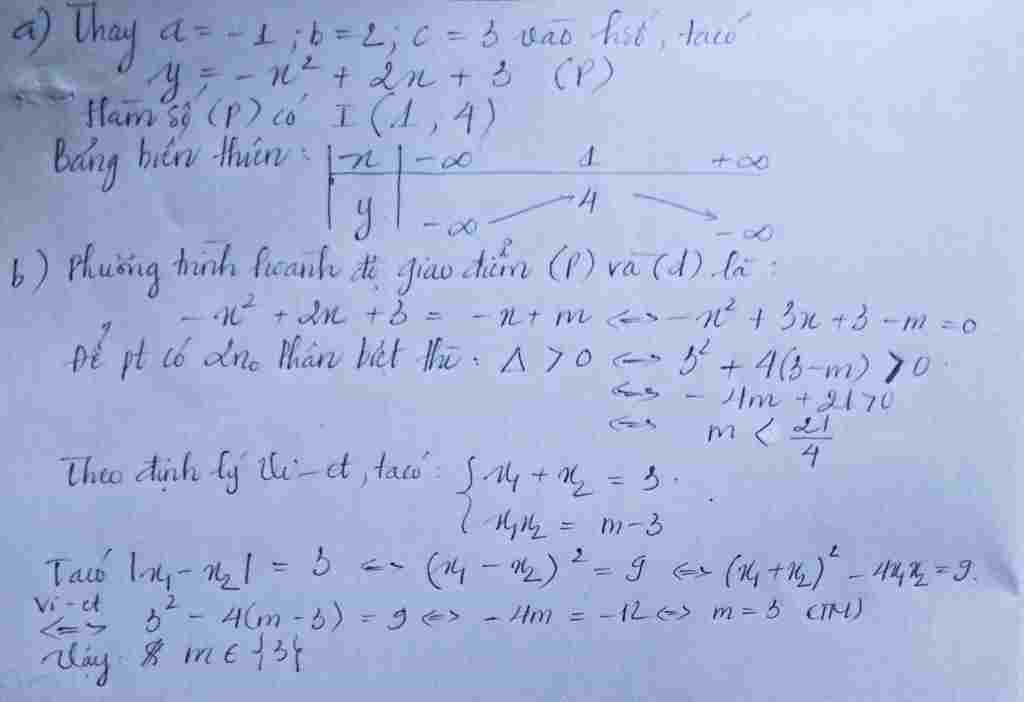 a) Thay a = -1 ; b = 2 ; c = 3 vào hst, ta có
y = -x² + 2x + 3 (P)
Hàm số (P) có I (1, 4)
Bảng biến thiên: x -∞ 1 +∞
y -∞ 4 -∞
b) Phương trình hoành độ giao điểm (P) và (d) là :
-x² + 2x + 3 = -x + m <=> -x² + 3x + 3 - m = 0
Để pt có 2 no phân biệt thì : Δ > 0 <=> 3² + 4(3-m) > 0
<=> - 4m + 21 > 0
<=> m < 21/4
Theo định lý Vi-ét, ta có : { x₁ + x₂ = 3
x₁x₂ = m-3
Ta có |x₁ - x₂| = 3 <=> (x₁ - x₂)² = 9 <=> (x₁+x₂)² - 4x₁x₂ = 9.
Vi-ét
<=> 3² - 4(m-3) = 9 <=> -4m = -12 <=> m = 3 (TM)
Vậy m ∈ {3}